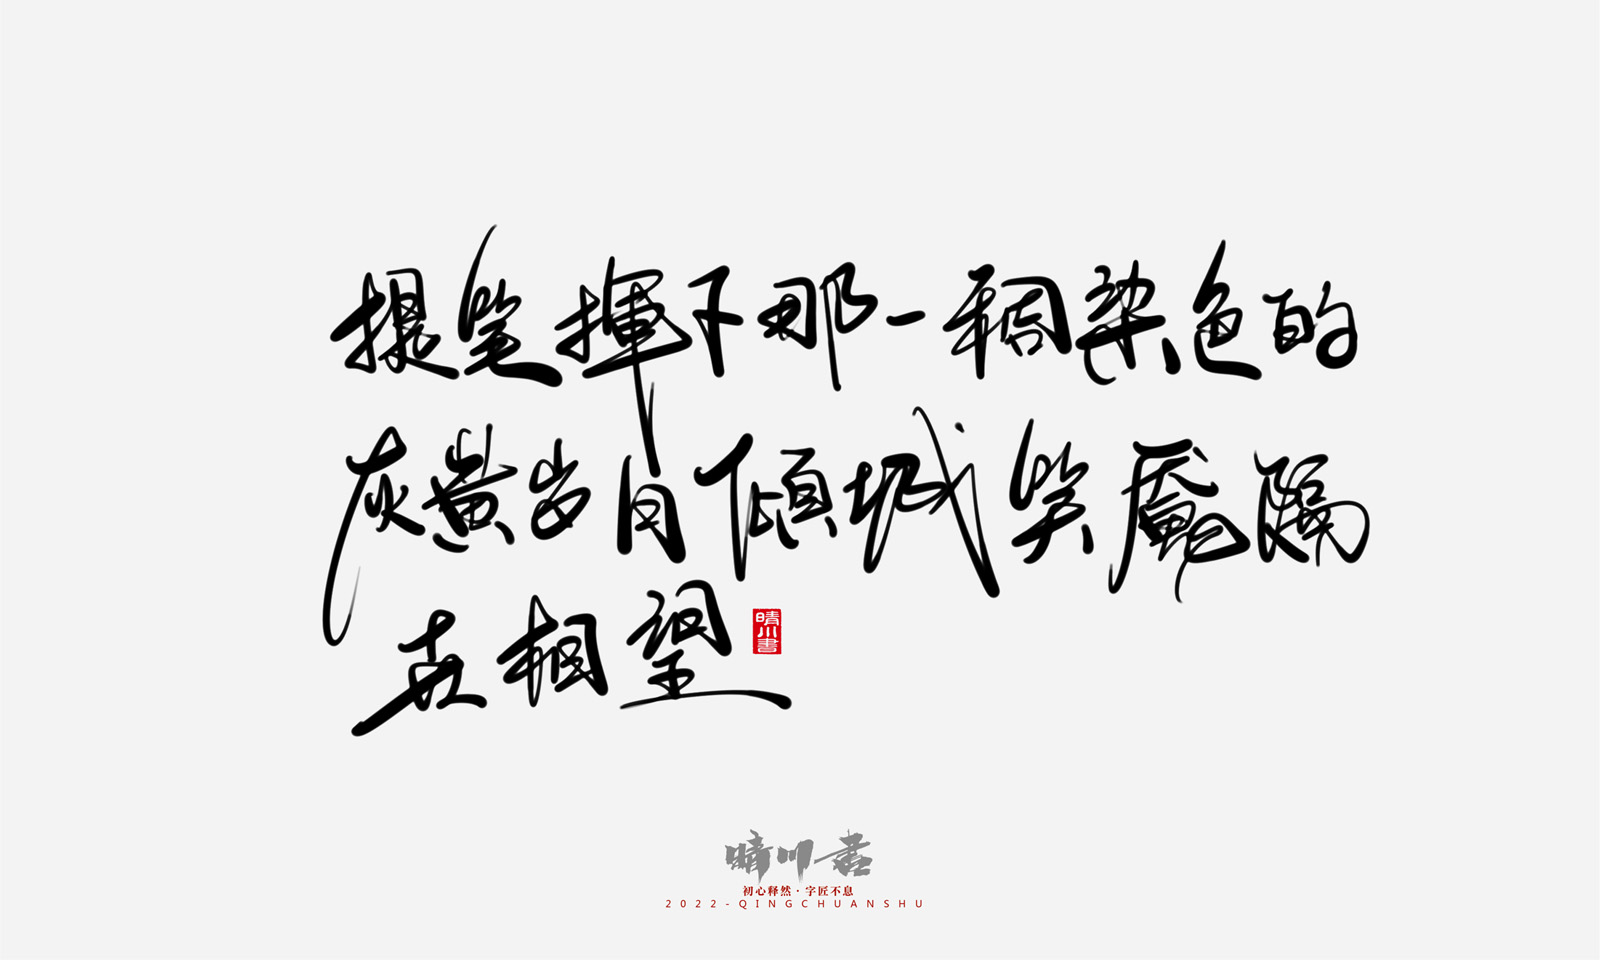 提笔揮下那一稠染色的
灰黄岁月倾城笑靥隔
岸相望
晴川書
晴川书
初心释然·字匠不息
2022-QINGCHUANSHU